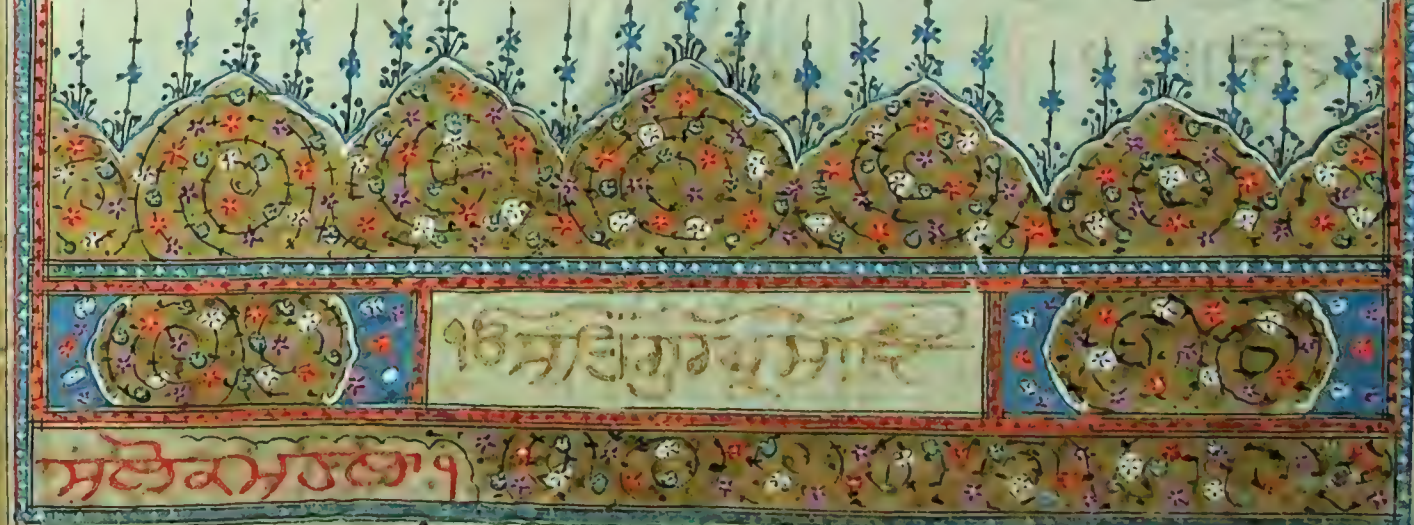 ੴਸਤਿਗੁਰਪ੍ਰਸਾਦਿ
ਸਲੋਕਮਹਲਾ੧